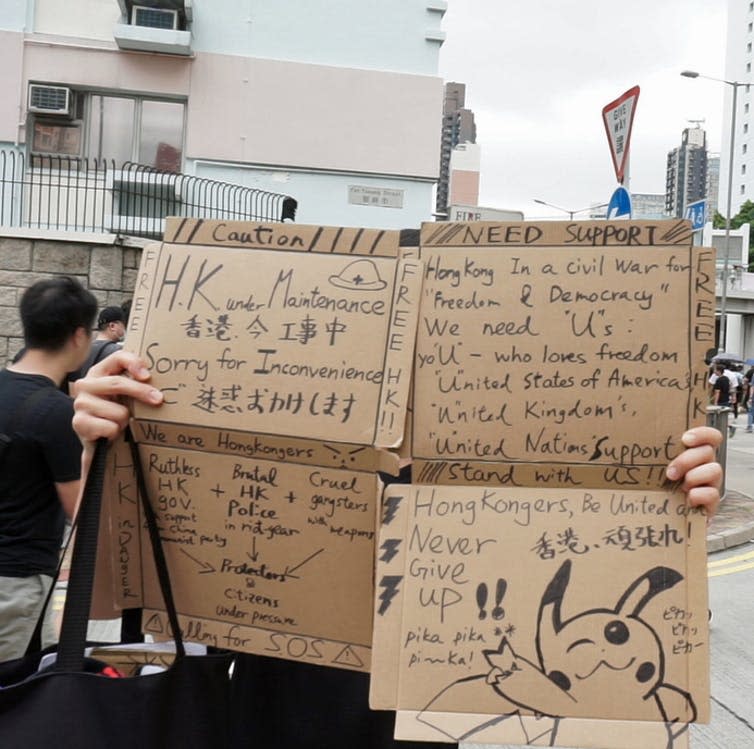 Caution
FREE
H.K. under Maintenance
香港、今工事中
Sorry for Inconvenience
ご迷惑おかけします
FREE HK!!
NEED SUPPORT
Hong Kong In a civil War for
"Freedom & Democracy"
We need "U"s:
yo"U" - who loves freedom
"U"nited States of America's
"U"nited Kingdom's,
"U"nited Nations' Support
FREE HK
We are Hongkongers
HK in DANGER
Ruthless HK gov.
+ Brutal HK Police in riot-gear
+ Cruel gangsters with weapons
Protectors
Citizens
under pressure
Calling for SOS
Stand with US!!
HongKongers, Be United
Never
Give
up!!
香港、頑張れ!
pika pika
pi~ka!
ピカッ
ピカッ
ピカー
GIVE WAY
讓
FIRE